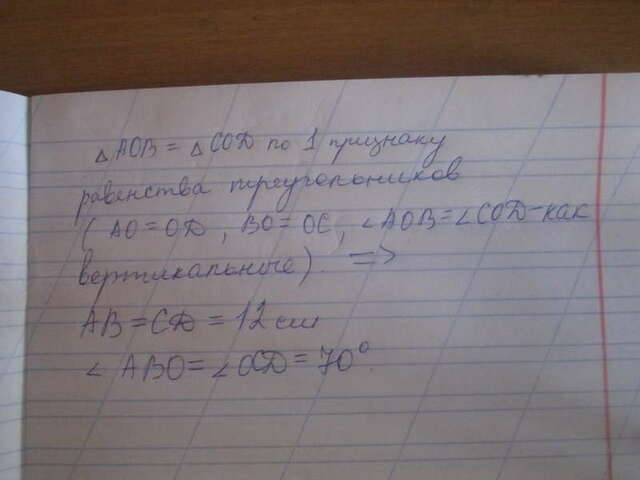 △AOB = △COD по 1 признаку
равенства треугольников
( AO = OD, BO = OC, ∠AOB = ∠COD - как
вертикальные). =>
AB = CD = 12 см
∠ ABO = ∠OCD = 70°